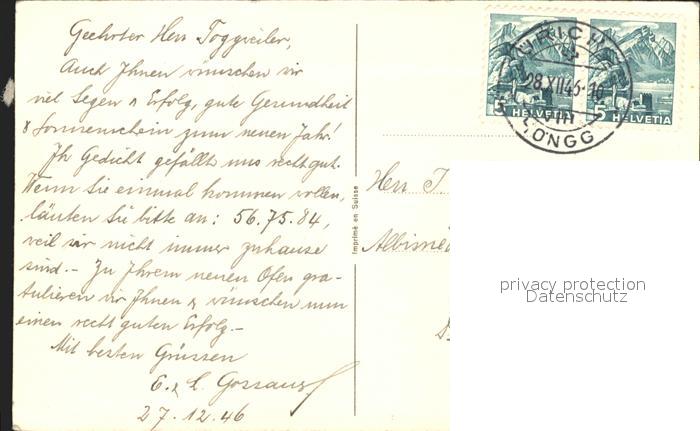 Geehrter Herr Toggweiler,
Auch Ihnen wünschen wir
viel Segen & Erfolg, gute Gesundheit
& Sonnenschein zum neuen Jahr!
Ihr Gedicht gefällt uns recht gut.
Wenn Sie einmal kommen wollen,
läuten Sie bitte an: 56.75.84,
weil wir nicht immer zuhause
sind.- Zu Ihrem neuen Ofen gra-
tulieren wir Ihnen & wünschen nun
einen recht guten Erfolg.-
Mit besten Grüssen
E. & L. Gossauer
27.12.46
Imprimé en Suisse
5 HELVETIA
HELVETIA
28.XII.46-10
HÖNGG
Herr T.
Albisrie
privacy protection
Datenschutz